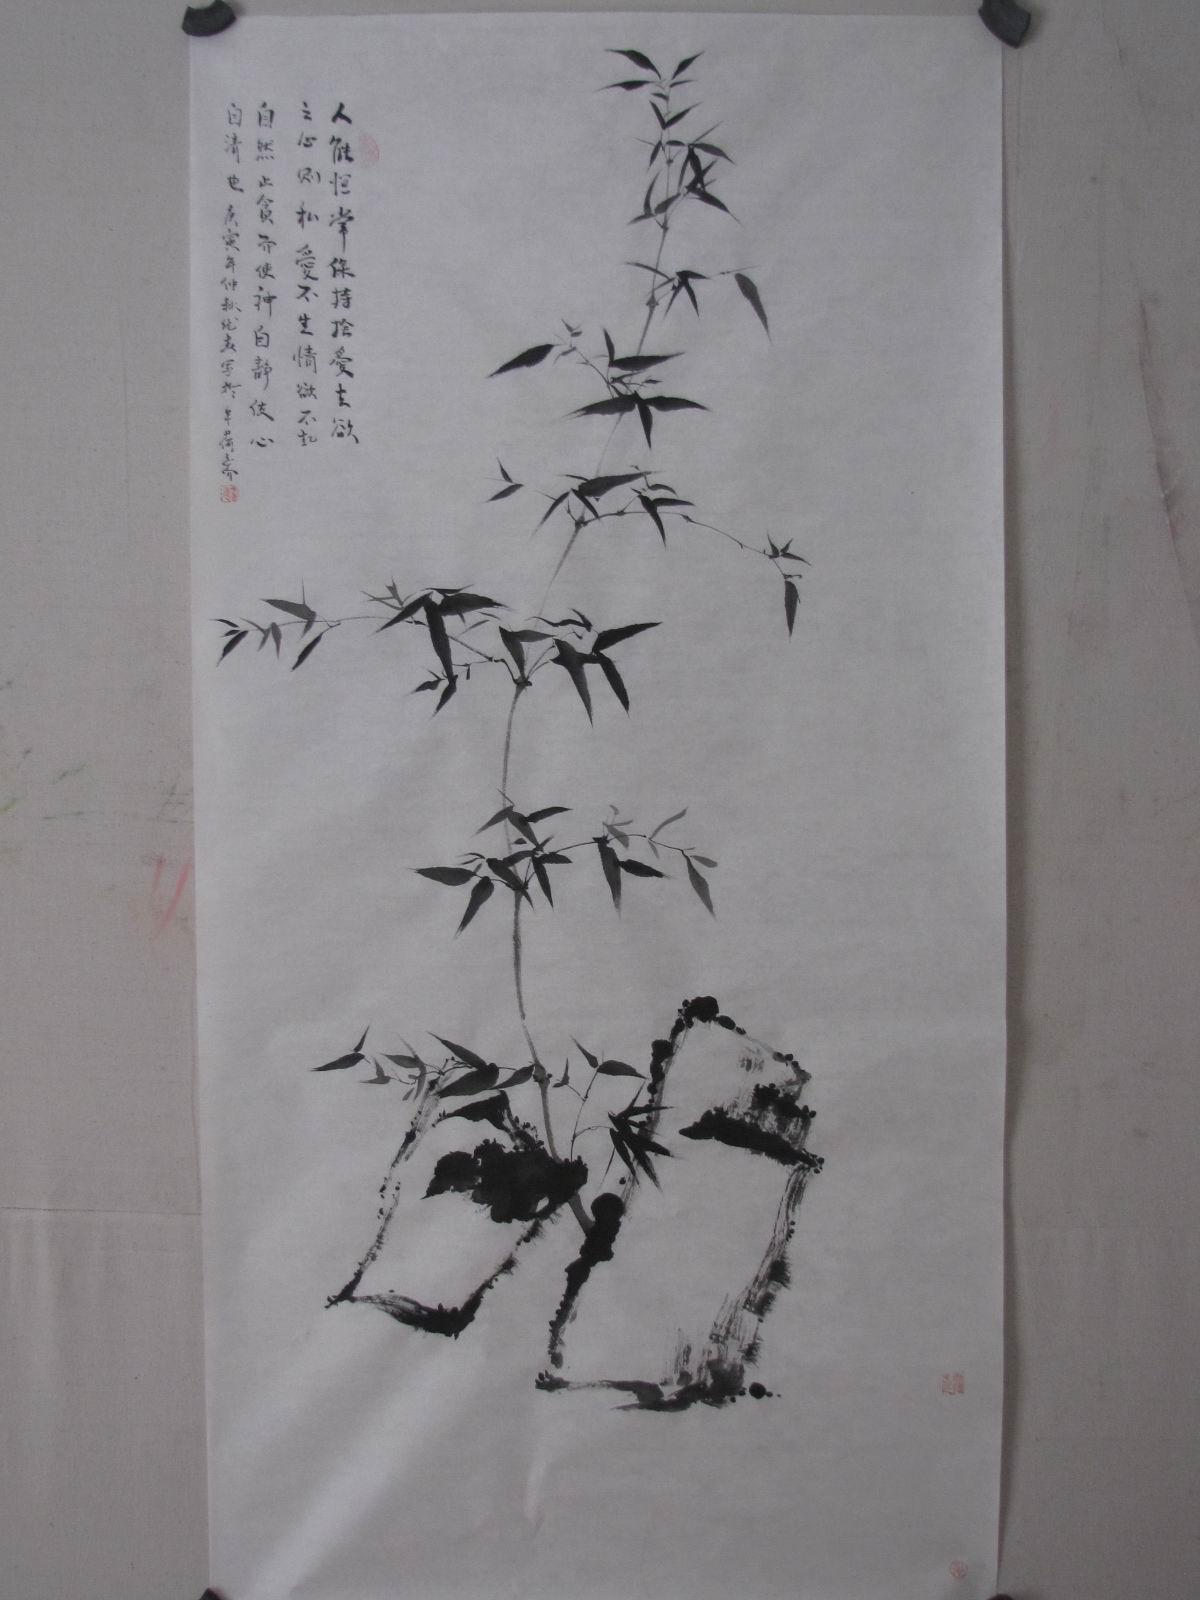 人能恒常保持捨愛去欲
之心则私愛不生情欲不起
自然止貪而使神自靜使心
自清也 庚寅年仲秋 写於